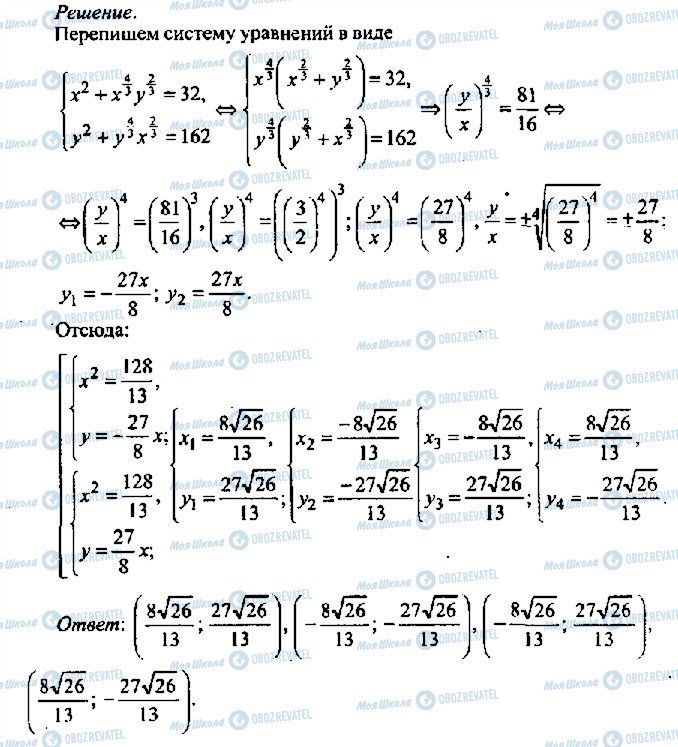 Решение.
Перепишем систему уравнений в виде
{ x² + x^(4/3) y^(2/3) = 32, y² + y^(4/3) x^(2/3) = 162 ⇔ { x^(4/3) (x^(2/3) + y^(2/3)) = 32, y^(4/3) (y^(2/3) + x^(2/3)) = 162 ⇒ (y/x)^(4/3) = 81/16 ⇔
⇔ (y/x)⁴ = (81/16)³, (y/x)⁴ = ((3/2)⁴)³; (y/x)⁴ = (27/8)⁴, y/x = ±⁴√((27/8)⁴) = ±27/8;
y₁ = −27x/8; y₂ = 27x/8.
Отсюда:
[ { x² = 128/13, y = −27/8 x; { x² = 128/13, y = 27/8 x; { x₁ = 8√26/13, y₁ = 27√26/13; { x₂ = −8√26/13 y₂ = −27√26/13 { x₃ = −8√26/13, y₃ = 27√26/13; { x₄ = 8√26/13, y₄ = −27√26/13.
Ответ: (8√26/13; 27√26/13), (−8√26/13; −27√26/13), (−8√26/13; 27√26/13),
(8√26/13; −27√26/13).
МояШкола OBOZREVATEL